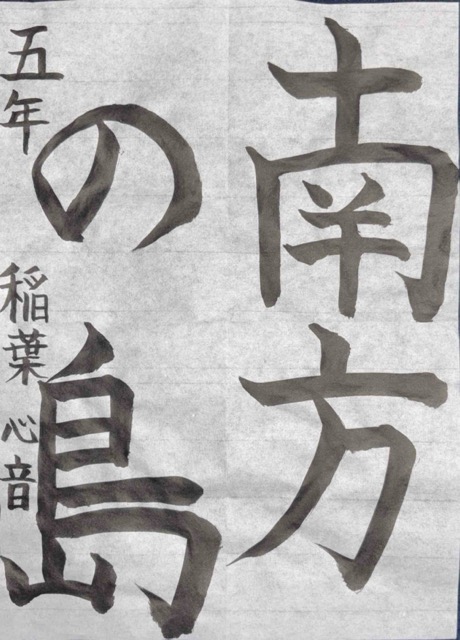 南方
の島
五年 稲葉 心音